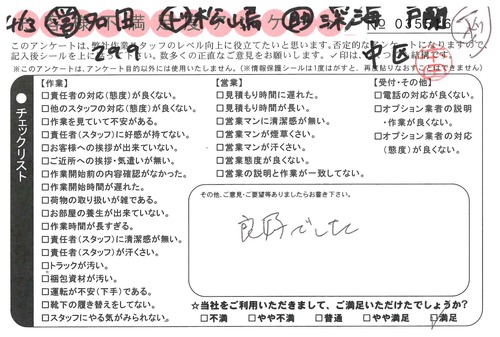 No
このアンケートは、弊社作業スタッフのレベル向上に役立てたいと思います。否定的なアンケートになりますので、
記入後シールを上に
※このアンケートは、アンケート目的以外には使用いたしません。(※情報保護シールは1度はがすと、再度貼りなおすことはできません)
チェックリスト
【作業】
□責任者の対応(態度)が良くない。
□他のスタッフの対応(態度)が良くない。
□作業を見ていて不安がある。
□責任者(スタッフ)に好感が持てない。
□お客様への挨拶が出来ていない。
□ご近所への挨拶・気遣いが無い。
□作業開始前の内容確認がなかった。
□作業開始時間が遅れた。
□荷物の取り扱いが雑である。
□お部屋の養生が出来ていない。
□作業時間が長すぎる。
□責任者(スタッフ)に清潔感が無い。
□責任者(スタッフ)が汗くさい。
□トラックが汚い。
□梱包資材が汚い。
□運転が不安(下手)である。
□靴下の履き替えをしてない。
□スタッフにやる気がみられない。
【営業】
□見積もり時間に遅れた。
□見積もり時間が長い。
□営業マンに清潔感が無い。
□営業マンが煙草くさい。
□営業マンが汗くさい。
□営業態度が良くない。
□営業の説明と作業が一致してない。
【受付・その他】
□電話の対応が良くない。
□オプション業者の説明
・作業が良くない。
□オプション業者の対応
(態度)が良くない。
その他、ご意見・ご要望等ありましたらお書き下さい。
良好でした
☆当社をご利用いただきまして、ご満足いただけたでしょうか?
□不満 □やや不満 □普通 □やや満足 □満足